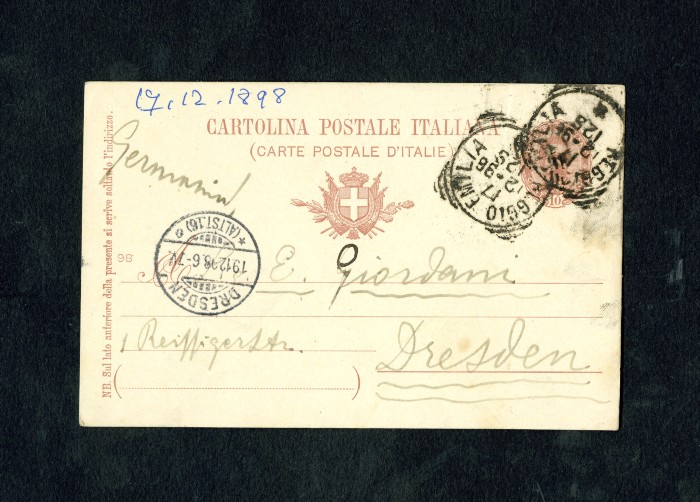 17.12.1898
CARTOLINA POSTALE ITALIANA
(CARTE POSTALE D'ITALIE)
NB. Sul lato anteriore della presente si scrive soltanto l'indirizzo.
Germania
EMILIA
17 12 98
DRESDEN
19.12.98.6-7N.
*(ALTST.16)
98
E. Giordani
1 Reissigerstr.
Dresden